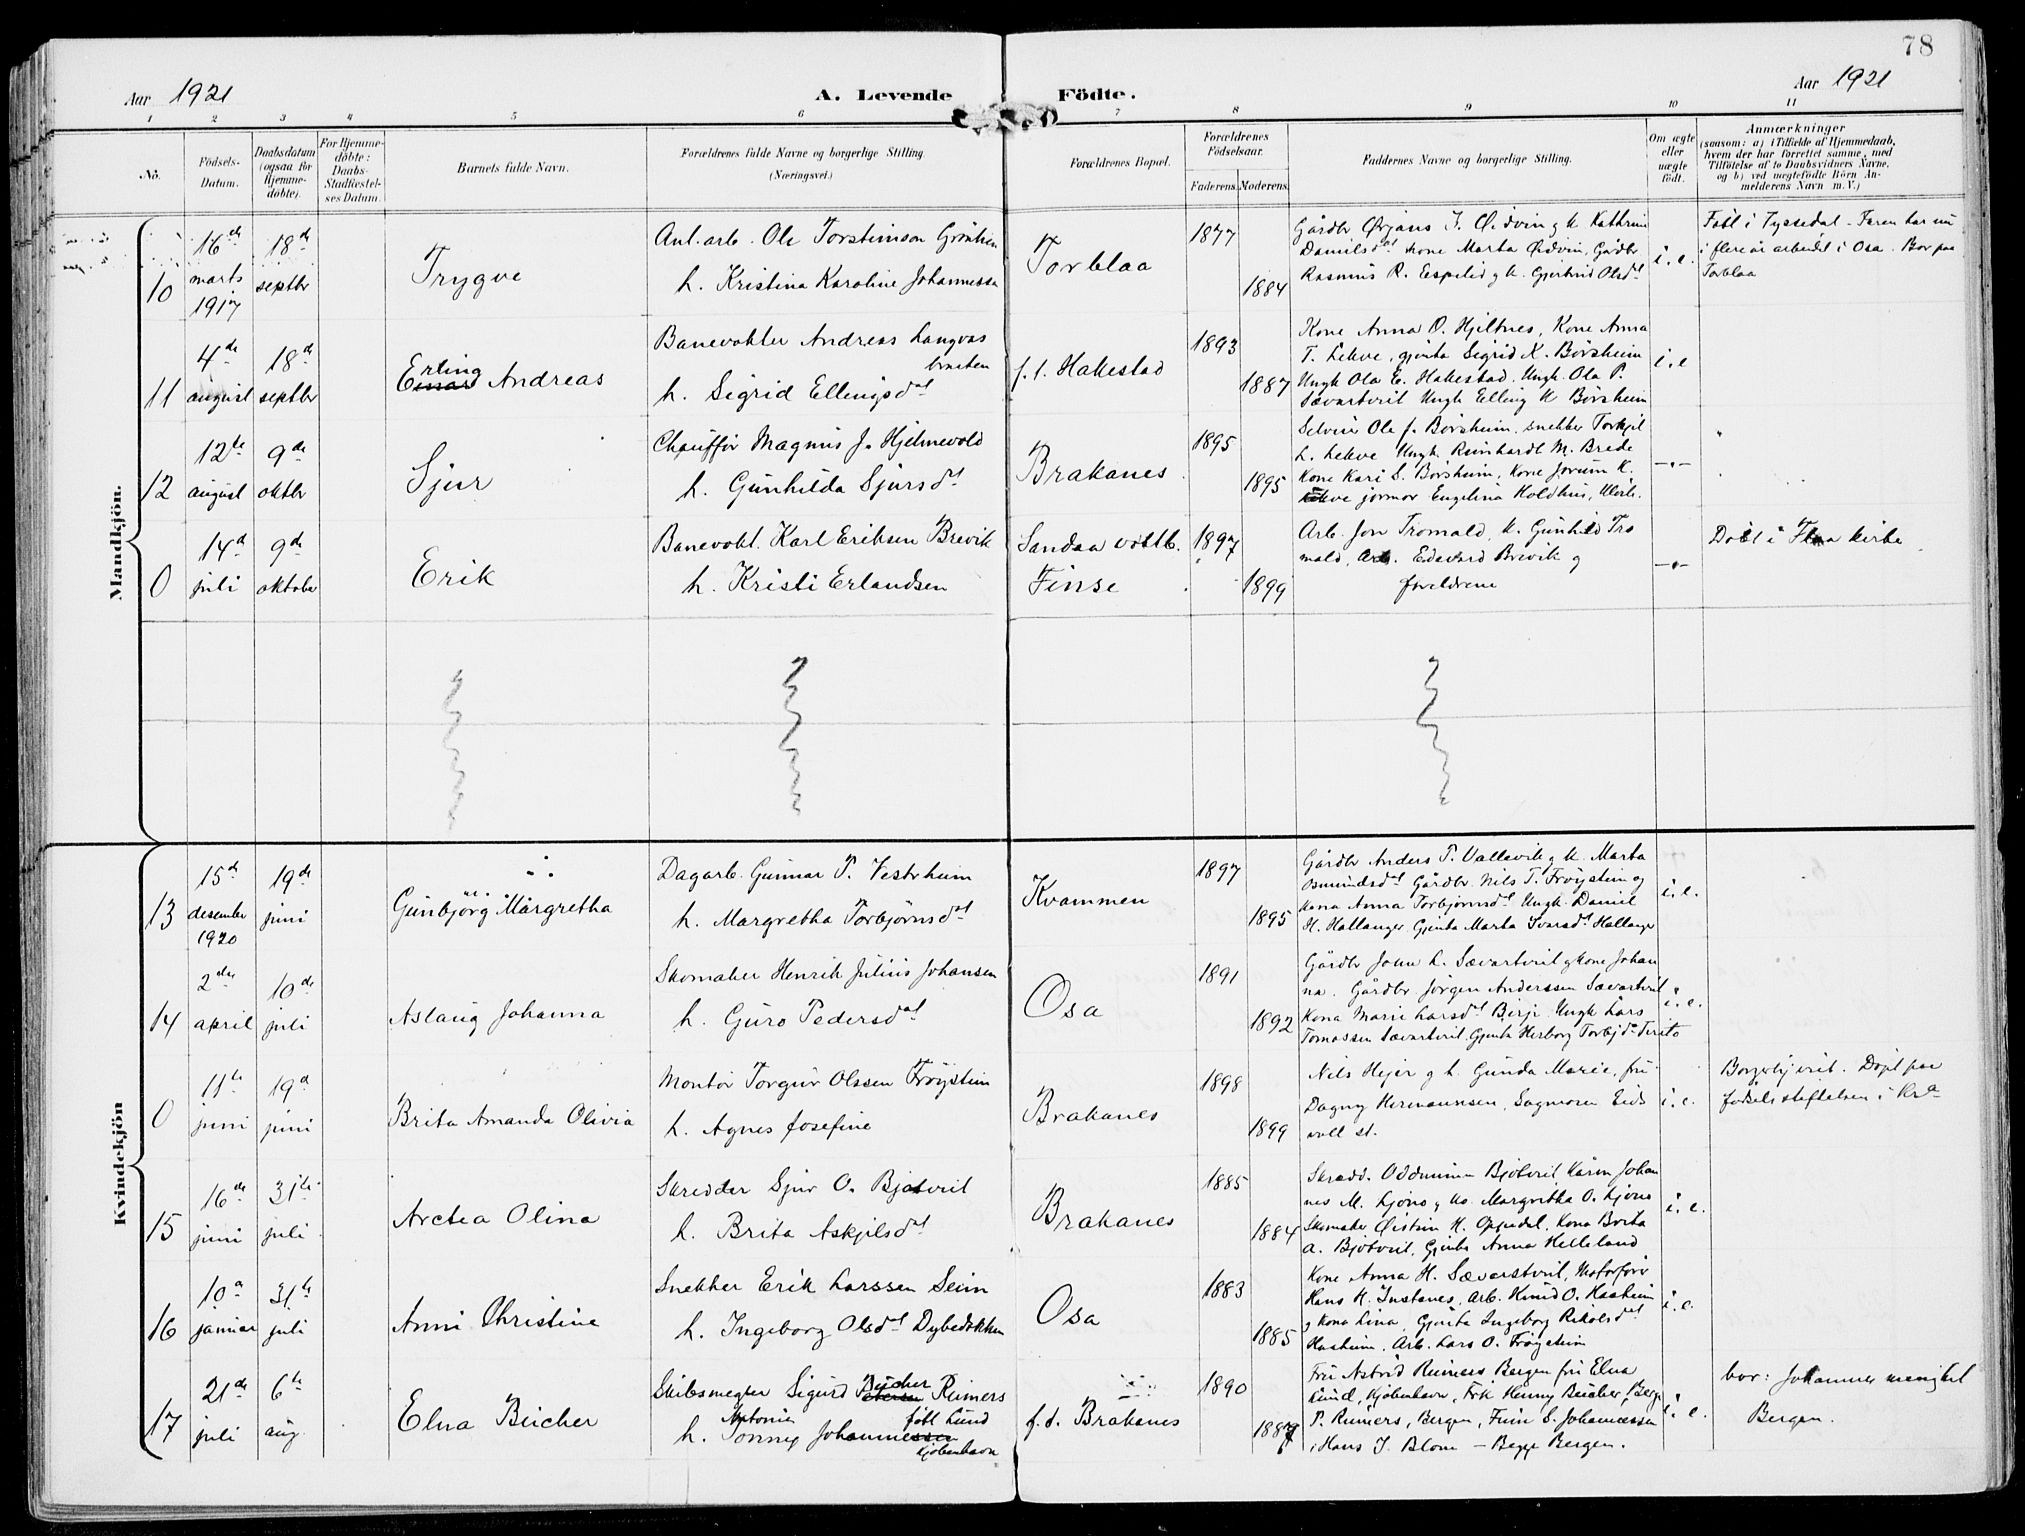 78
Aar 1921
A. Levende Födte.
Aar 1921
1 2 3 4 5 6 7 8 9 10 11
No.
Födsels-
Datum.
Daabsdatum
(ogsaa för
Hjemme-
döbte).
For Hjemme-
döbte:
Daabs-
Stadfæstel-
ses Datum.
Barnets fulde Navn.
Forældrenes fulde Navne og borgerlige Stilling.
(Næringsvei.)
Forældrenes Bopæl.
Forældrenes
Födselsaar.
Faderens. Moderens.
Faddernes Navne og borgerlige Stilling.
Om ægte
eller
uægte
födt.
Anmærkninger
(saasom: a) i Tilfælde af Hjemmedaab,
hvem der har forrettet samme, med
Tilföielse af to Daabsvidners Navne,
og b) ved uægtefödte Börn An-
melderens Navn m. V.)
Mandkjön.
10
16de
marts
1917
18de
septbr
Trygve
Anl. arb. Ole Torsteinson
h. Kristina Karoline
Torblaa
1877
1884
Gårdbr Ørjans J. Øidvin g k. Kathrine
Danielsdat kone Marta Øidvin, Gårdbr
Rasmus R. Espelid g k. Gjertrud Olsdat
i. e.
Födt i Tyssedal. Faren har nu
i flere år arbeidet i Osa. Bor paa
Torblaa
11
4de
august
18de
septbr
Erling
Einar Andreas
Banevokter Andreas Langvas
braaten
h. Sigrid Ellingsdat
f. t. Hakestad
1893
1887
Kone Anna O. Hjeltnes, Kone Anna
T. Lekve, gjenta Sigrid K. Børsheim
Ungk Ola E. Hakestad, Ungk. Ola P.
Sævartveit Ungk Elling K Børsheim
i. e
12
12te
august
9de
oktbr
Sjur
Chauffør Magnus J. Hjelmevold
h. Gunhilda Sjursdt
Brakanes
1895
1895
Selveier Ole J. Børsheim, snekker Torkjel
L. Lekve Ungk. Reinhardt M. Brede
Kone Kari S. Børsheim, Kone Jorunn K.
Lekve jormor Engelina Holdhus, Ulvik.
—"—
0
14d
juli
9de
oktober
Erik
Banevokt. Karl Eriksen Brevik
h. Kristi Erlandsen
Sandaa voktb.
Finse
1897
1899
Arb. Jon Tromald, k. Gunhild Tro
mald, Arb. Edvard Brevik g
foreldrene
—"—
Døbt i Flaa kirke
Kvindekjön
13
15d
desember
1920
19de
juni
Gunbjörg Margretha
Dagarb. Gunnar P. Vestrheim
h. Margretha Torbjørnsdt
Kvammen
1897
1895
Gårdbr Anders P. Vallevik g k. Marta
Osmundsdat Gårdbr. Nils T. Frøystein g
kona Anna Torbjørnsdt Ungk. Daniel
H. Hallanger, Gjenta Marta Ivarsdt Hallanger
i. e.
14
2den
april
10de
juli
Aslaug Johanna
Skomaker Henrik Julius Johansen
h. Guro Pedersdat
Osa
1891
1892
Gårdbr John L. Sævartveit g kone Johan
na. Gårdbr. Jørgen Anderssen Sævartveit
Kona Marie Larsdt Ungk Lars
Tomassen Sævartveit, Gjenta Herborg
i. e.
0
11te
juni
19d
juni
Brita Amanda Olivia
Montør Torgeir Olssen Frøystein
h. Agnes Josefine
Brakanes
1898
1899
Nils Hejer g h. Gunda Marie, fru
Dagny Hermannsen, Sagmoen Eids
voll st.
i. e.
Borgerlig viet. Døpt paa
fødselsstiftelsen i Kra
15
16de
juni
31te
juli
Arctea Olina
Skredder Sjur O. Bjotveit
h. Brita Askjelsdat
Brakanes
1885
1884
Skredd. Oddmunn Bjotveit, Johan
nes M. Ljono g ks. Margretha O. Ljono
Skomaker Øistein H. Oppedal, Kona Brita
A. Bjotveit, Gjenta Anna Helleland
i. e.
16
10d
januar
31te
juli
Anni Christine
Snekker Erik Larssen Seim
h. Ingeborg Olsdt
Osa
1883
1885
Kone Anna H. Sævartveit, Motorfører
Hans H. Instanes, Arb. Knud O. Haaheim
g kona Lina, Gjenta Ingeborg
Haaheim, Arb. Lars O. Frøystein
i. e.
17
21de
juli
6te
aug.
Elna Bücher
Skibsmegler Sigurd Bücher Reimers
h. Antonie Tonny Johannessen
født Lund
Kjøbenhavn
f. t. Brakanes
1890
1887
Fru Astrid Reimers Bergen fru Elna
Lund, Kjøbenhavn, Frk Henny Bücher, Berg.
P. Reimers, Bergen, S. Johannessen
Hans J. Blom — Begge Bergen.
i. e.
bor: Johannes menighet
Bergen.